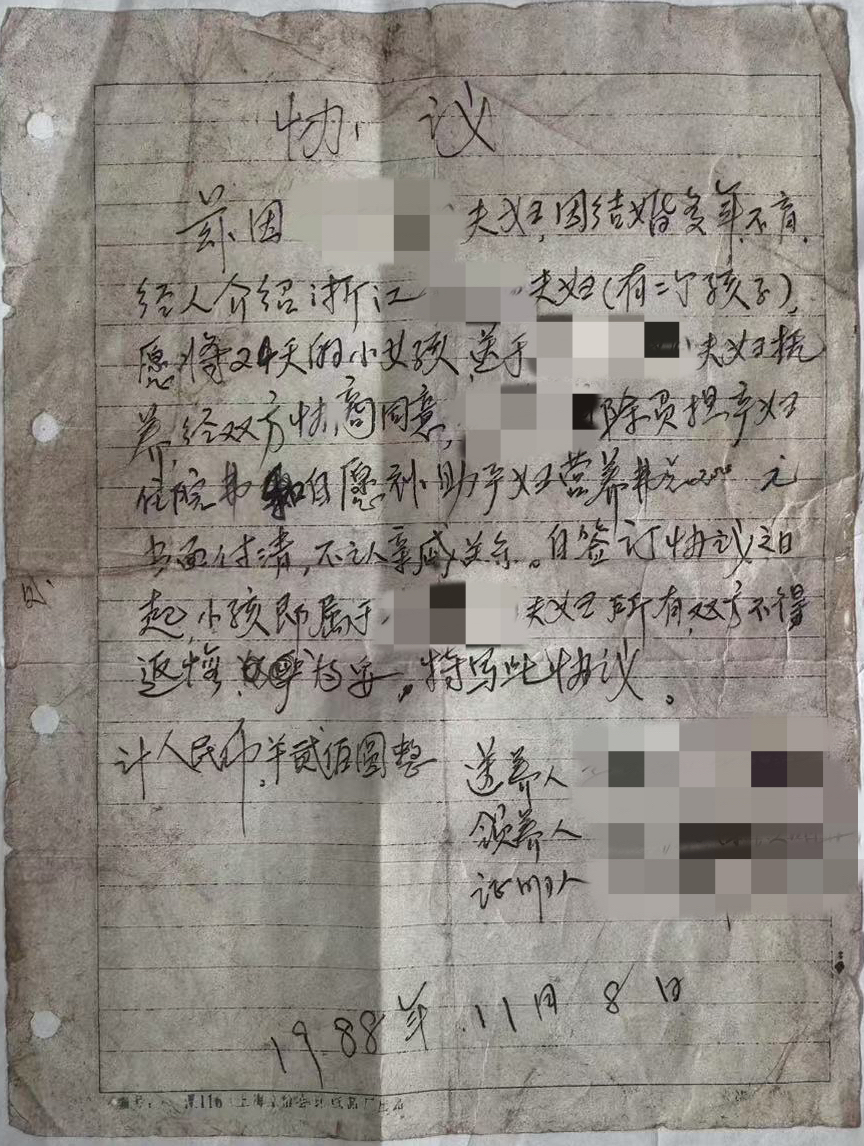 协议
兹因 夫妇,因结婚多年不育,
经人介绍浙江 夫妇(有二个孩子),
愿将24天的小女孩,送于 夫妇抚
养,经双方协商同意, 除负担产妇
住院费和自愿补助产妇营养费 元
当面付清,不认亲戚关系。自签订协议之日
起,小孩即属于 夫妇所有,双方不得
返悔 为妥。特写此协议。
计人民币 贰佰圆整
送养人
领养人
证明人
1988年.11月8日